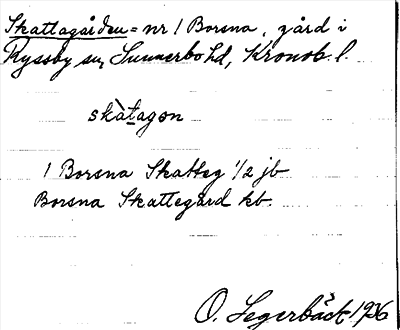 Skattagården = nr 1 Borsna, gård i
Ryssby sn, Sunnerbo hd, Kronob. l.
skàtagon
1 Borsna Skatteg 1/2 jb
Borsna Skattegård kb.
O. Segerbäck 1936